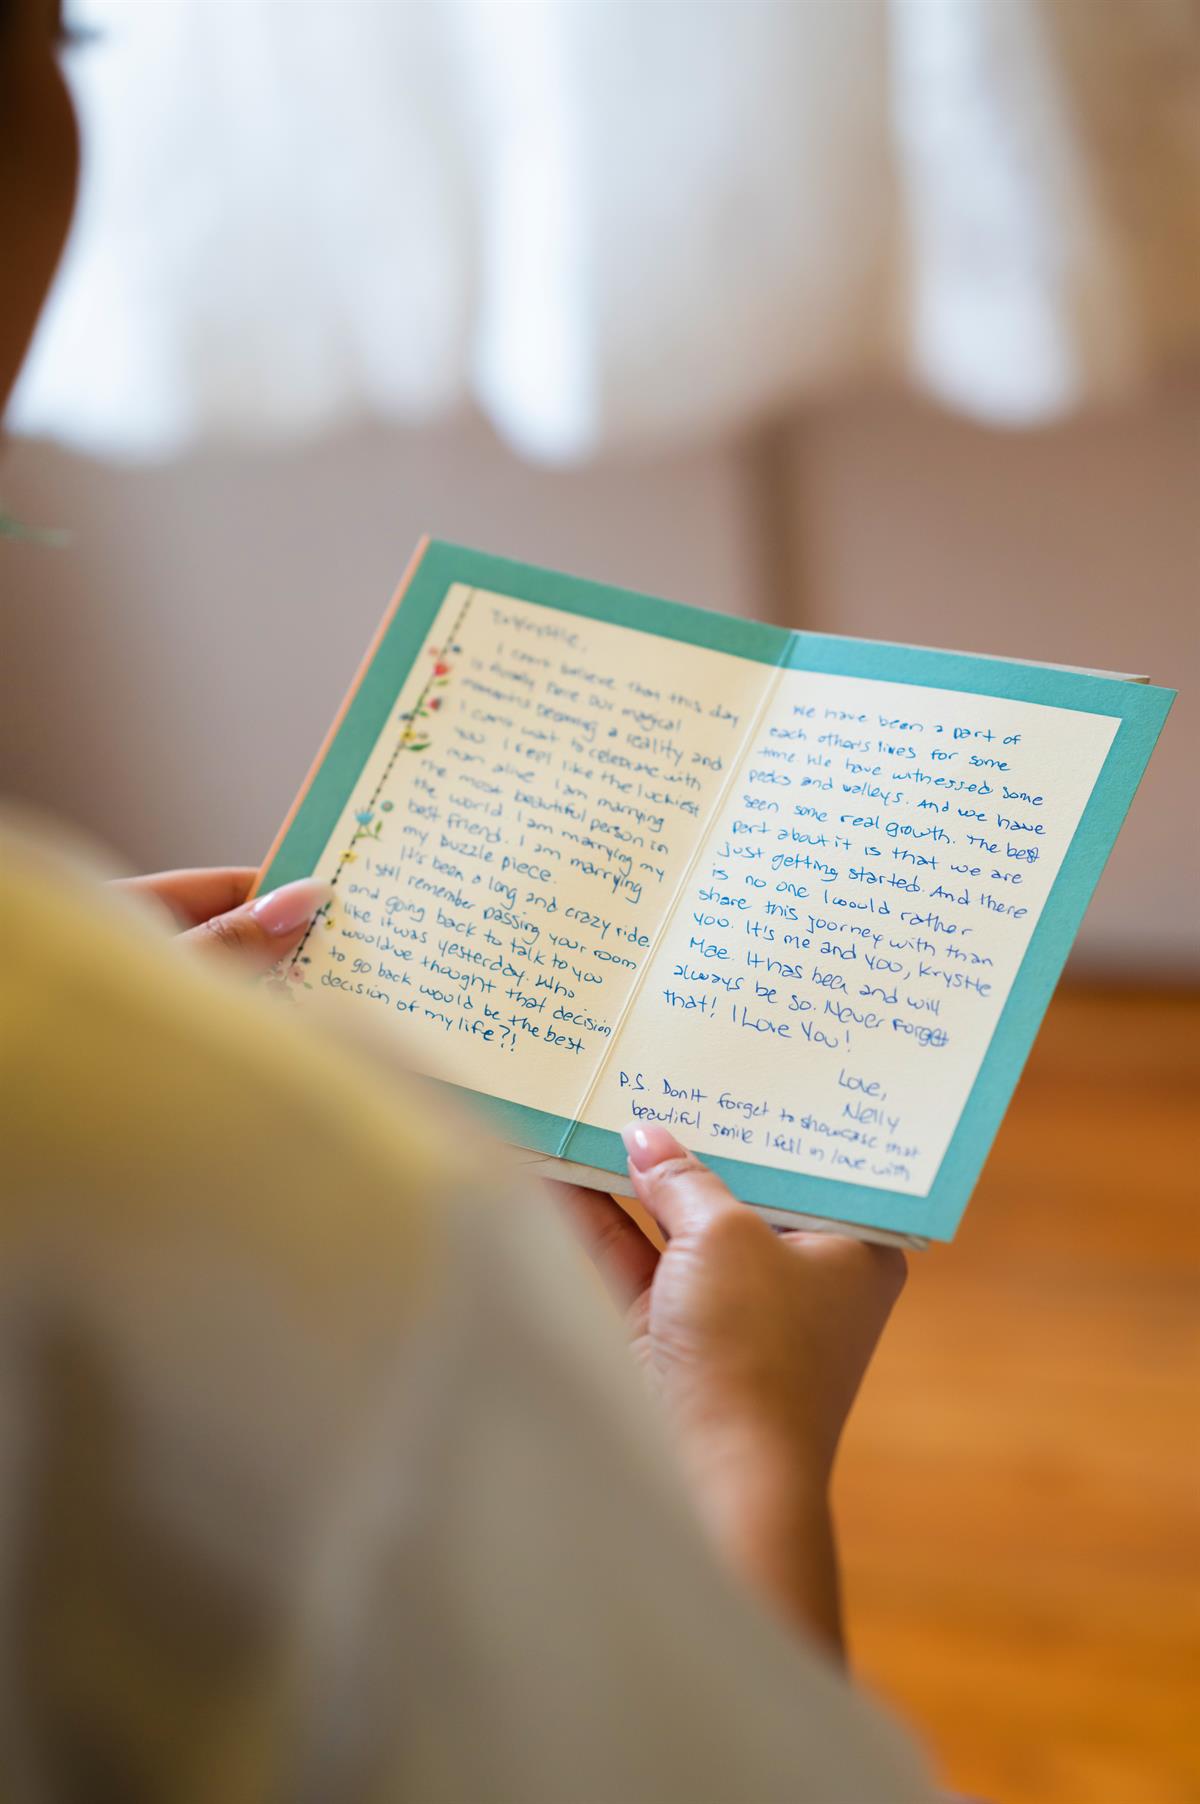 I can't believe that this day
is finally here. Our magical
moment is becoming a reality and
I can't wait to celebrate with
you. I feel like the luckiest
man alive. I am marrying
the most beautiful person in
the world. I am marrying my
best friend. I am marrying
my puzzle piece.
It's been a long and crazy ride.
I still remember passing your room
and going back to talk to you
like it was yesterday. Who
would've thought that decision
to go back would be the best
decision of my life?!
We have been a part of
each other's lives for some
time. We have witnessed some
peaks and valleys. And we have
seen some real growth. The best
part about it is that we are
just getting started. And there
is no one I would rather
share this journey with than
you. It's me and you, Krystle
Mae. It has been and will
always be so. Never forget
that! I Love You!
Love,
Nelly
P.S. Don't forget to showcase that
beautiful smile I fell in love with